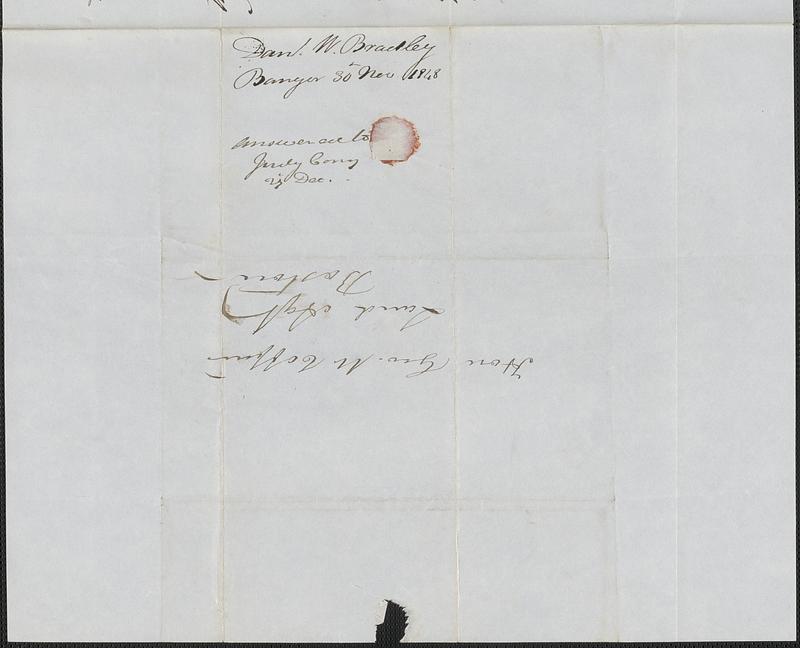 Danl. W. Bradley
Bangor 30 Nov 1848
answered to
Judg Cony
Dec.
Hon Geo. W Coffin
Land Agt
Boston